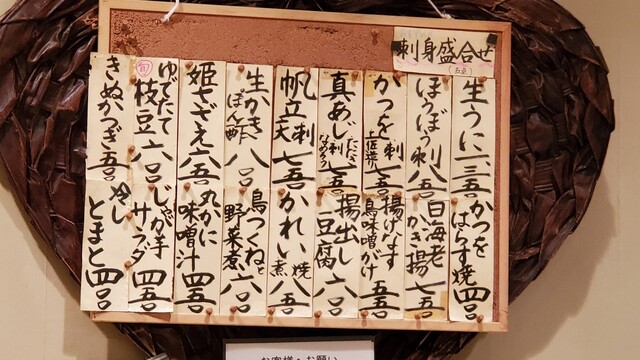 刺身盛合せ
(五点)
生うに 一、三五
ほうぼう刺 八五
かつを刺 土佐造り 七五
真あじ刺 たたき なめろう 七五
帆立刺 天 七五
生かき ぽん酢 八〇
姫さざえ 八五
旬 ゆでたて枝豆 六〇
きぬかつぎ 五〇
かつをはらす焼 四〇
白海老かき揚 七五
揚げなす鳥味噌がけ 五五
揚出し豆腐 六〇
かれい 焼 煮 八五
鳥つくねと野菜煮 六〇
丸かに味噌汁 四五
じゃが芋サラダ 四五
冷しとまと 四〇
お客様へお願い